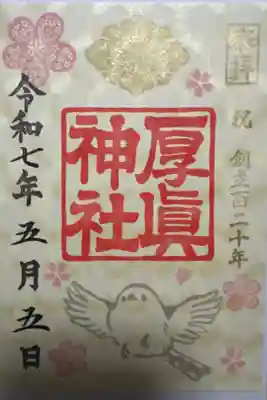 奉拝
祝 創立百二十年
厚眞
神社
令和七年五月五日